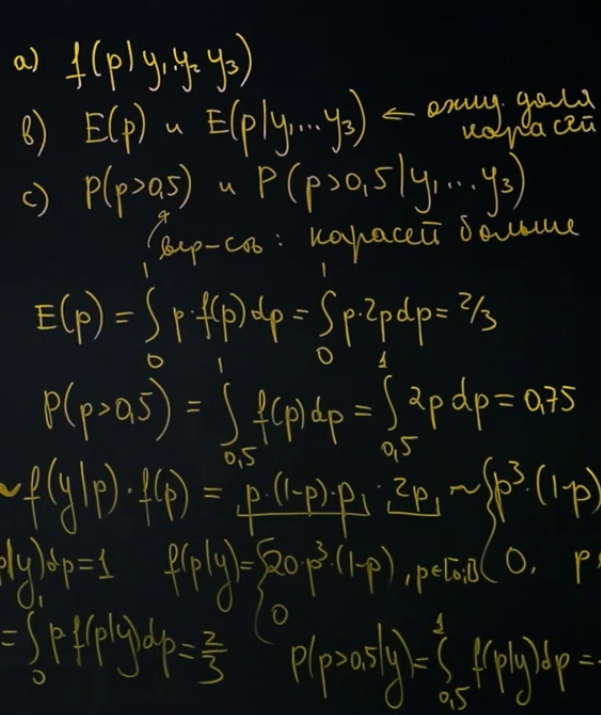 a) f(p|y₁ y₂ y₃)
b) E(p) и E(p|y₁...y₃) ← ожид. доля карасей
c) P(p>0,5) и P(p>0,5|y₁...y₃)
вер-сть: карасей больше
E(p) = ∫₀¹ p·f(p)dp = ∫₀¹ p·2pdp = 2/3
P(p>0,5) = ∫₀,₅¹ f(p)dp = ∫₀,₅¹ 2pdp = 0,75
~f(y|p)·f(p) = p·(1-p)·p · 2p ~ {p³·(1-p)
p|y)dp=1 f(p|y) = {20·p³·(1-p), p∈[0;1] 0, p
0
= ∫₀¹ p f(p|y)dp = 2/3 P(p>0,5|y) = ∫₀,₅¹ f(p|y)dp =